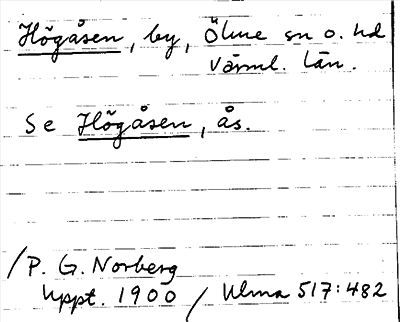 Högåsen, by, Ölme sn o. hd
Värml. län.
Se Högåsen, ås.
/P. G. Norberg
Uppt. 1900 / Ulma 517:482